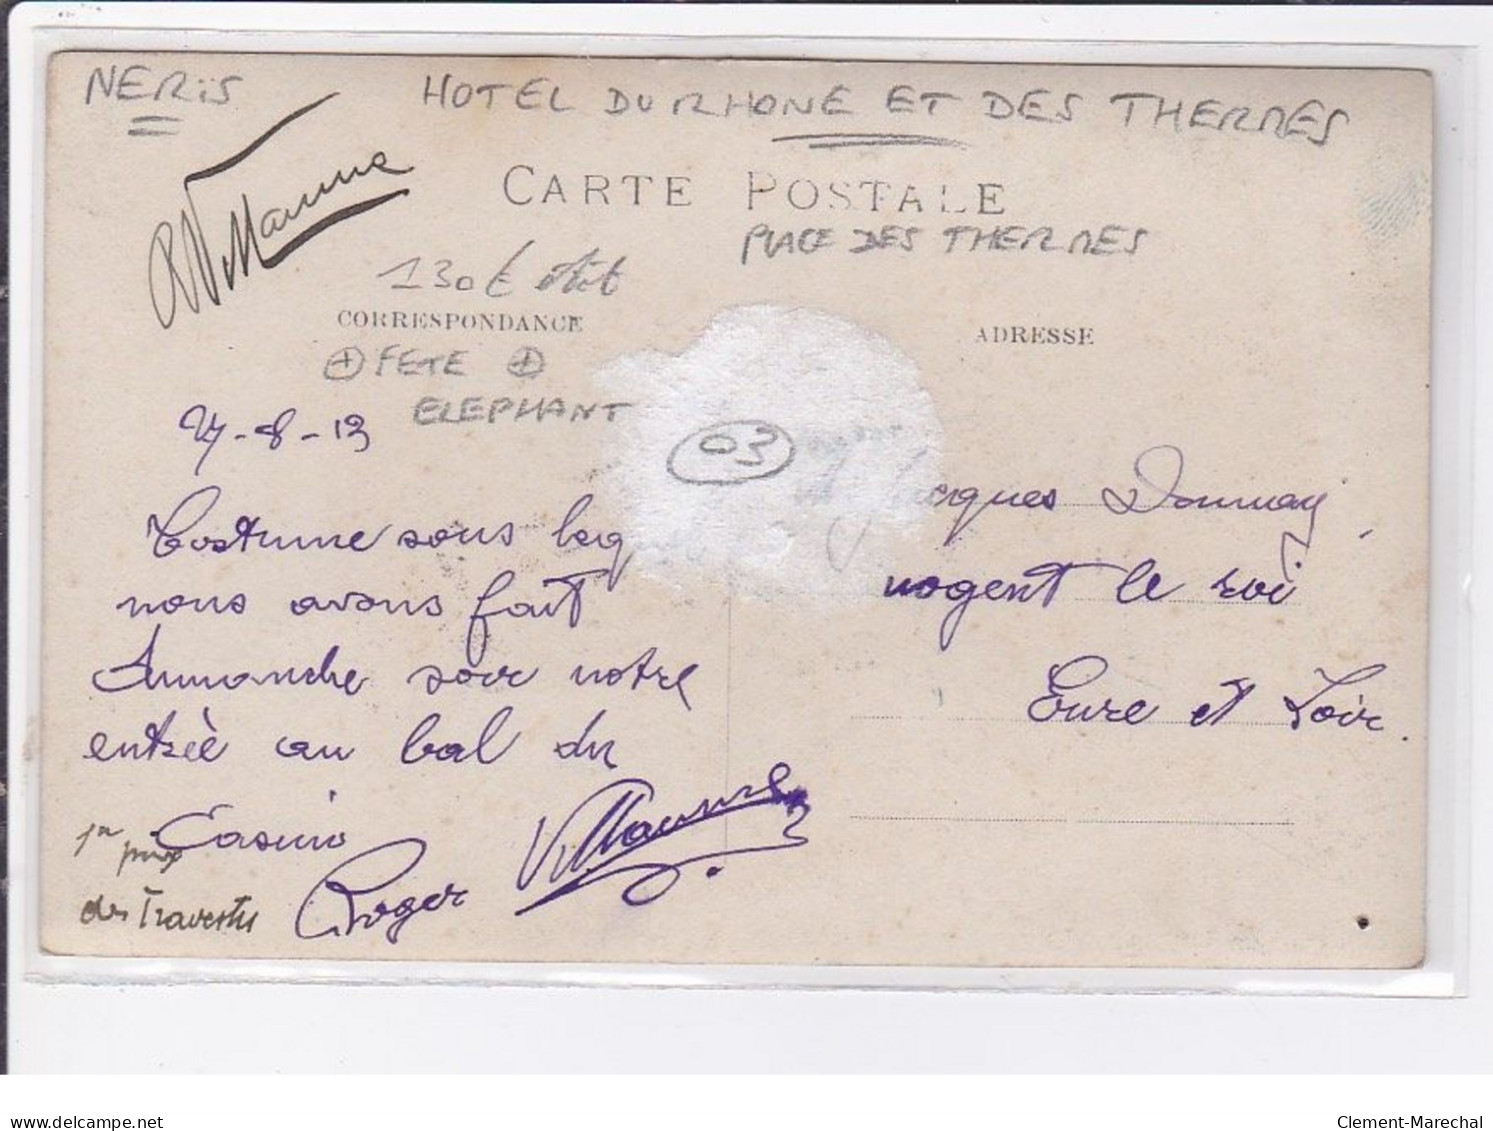 NERiS
HOTEL DU RHONE ET DES THERMES
CARTE POSTALE
PLACE DES THERMES
130€
CORRESPONDANCE
ADRESSE
FETE
ELEPHANT
03
-8-13
Costume sous leq
nous avons fait
dimanche soir notre
entrée au bal du
Casino
Roger
1er prix
des Travestis
cques
nogent le roi
Eure et Loir.
delcampe.net
Clement-Marechal